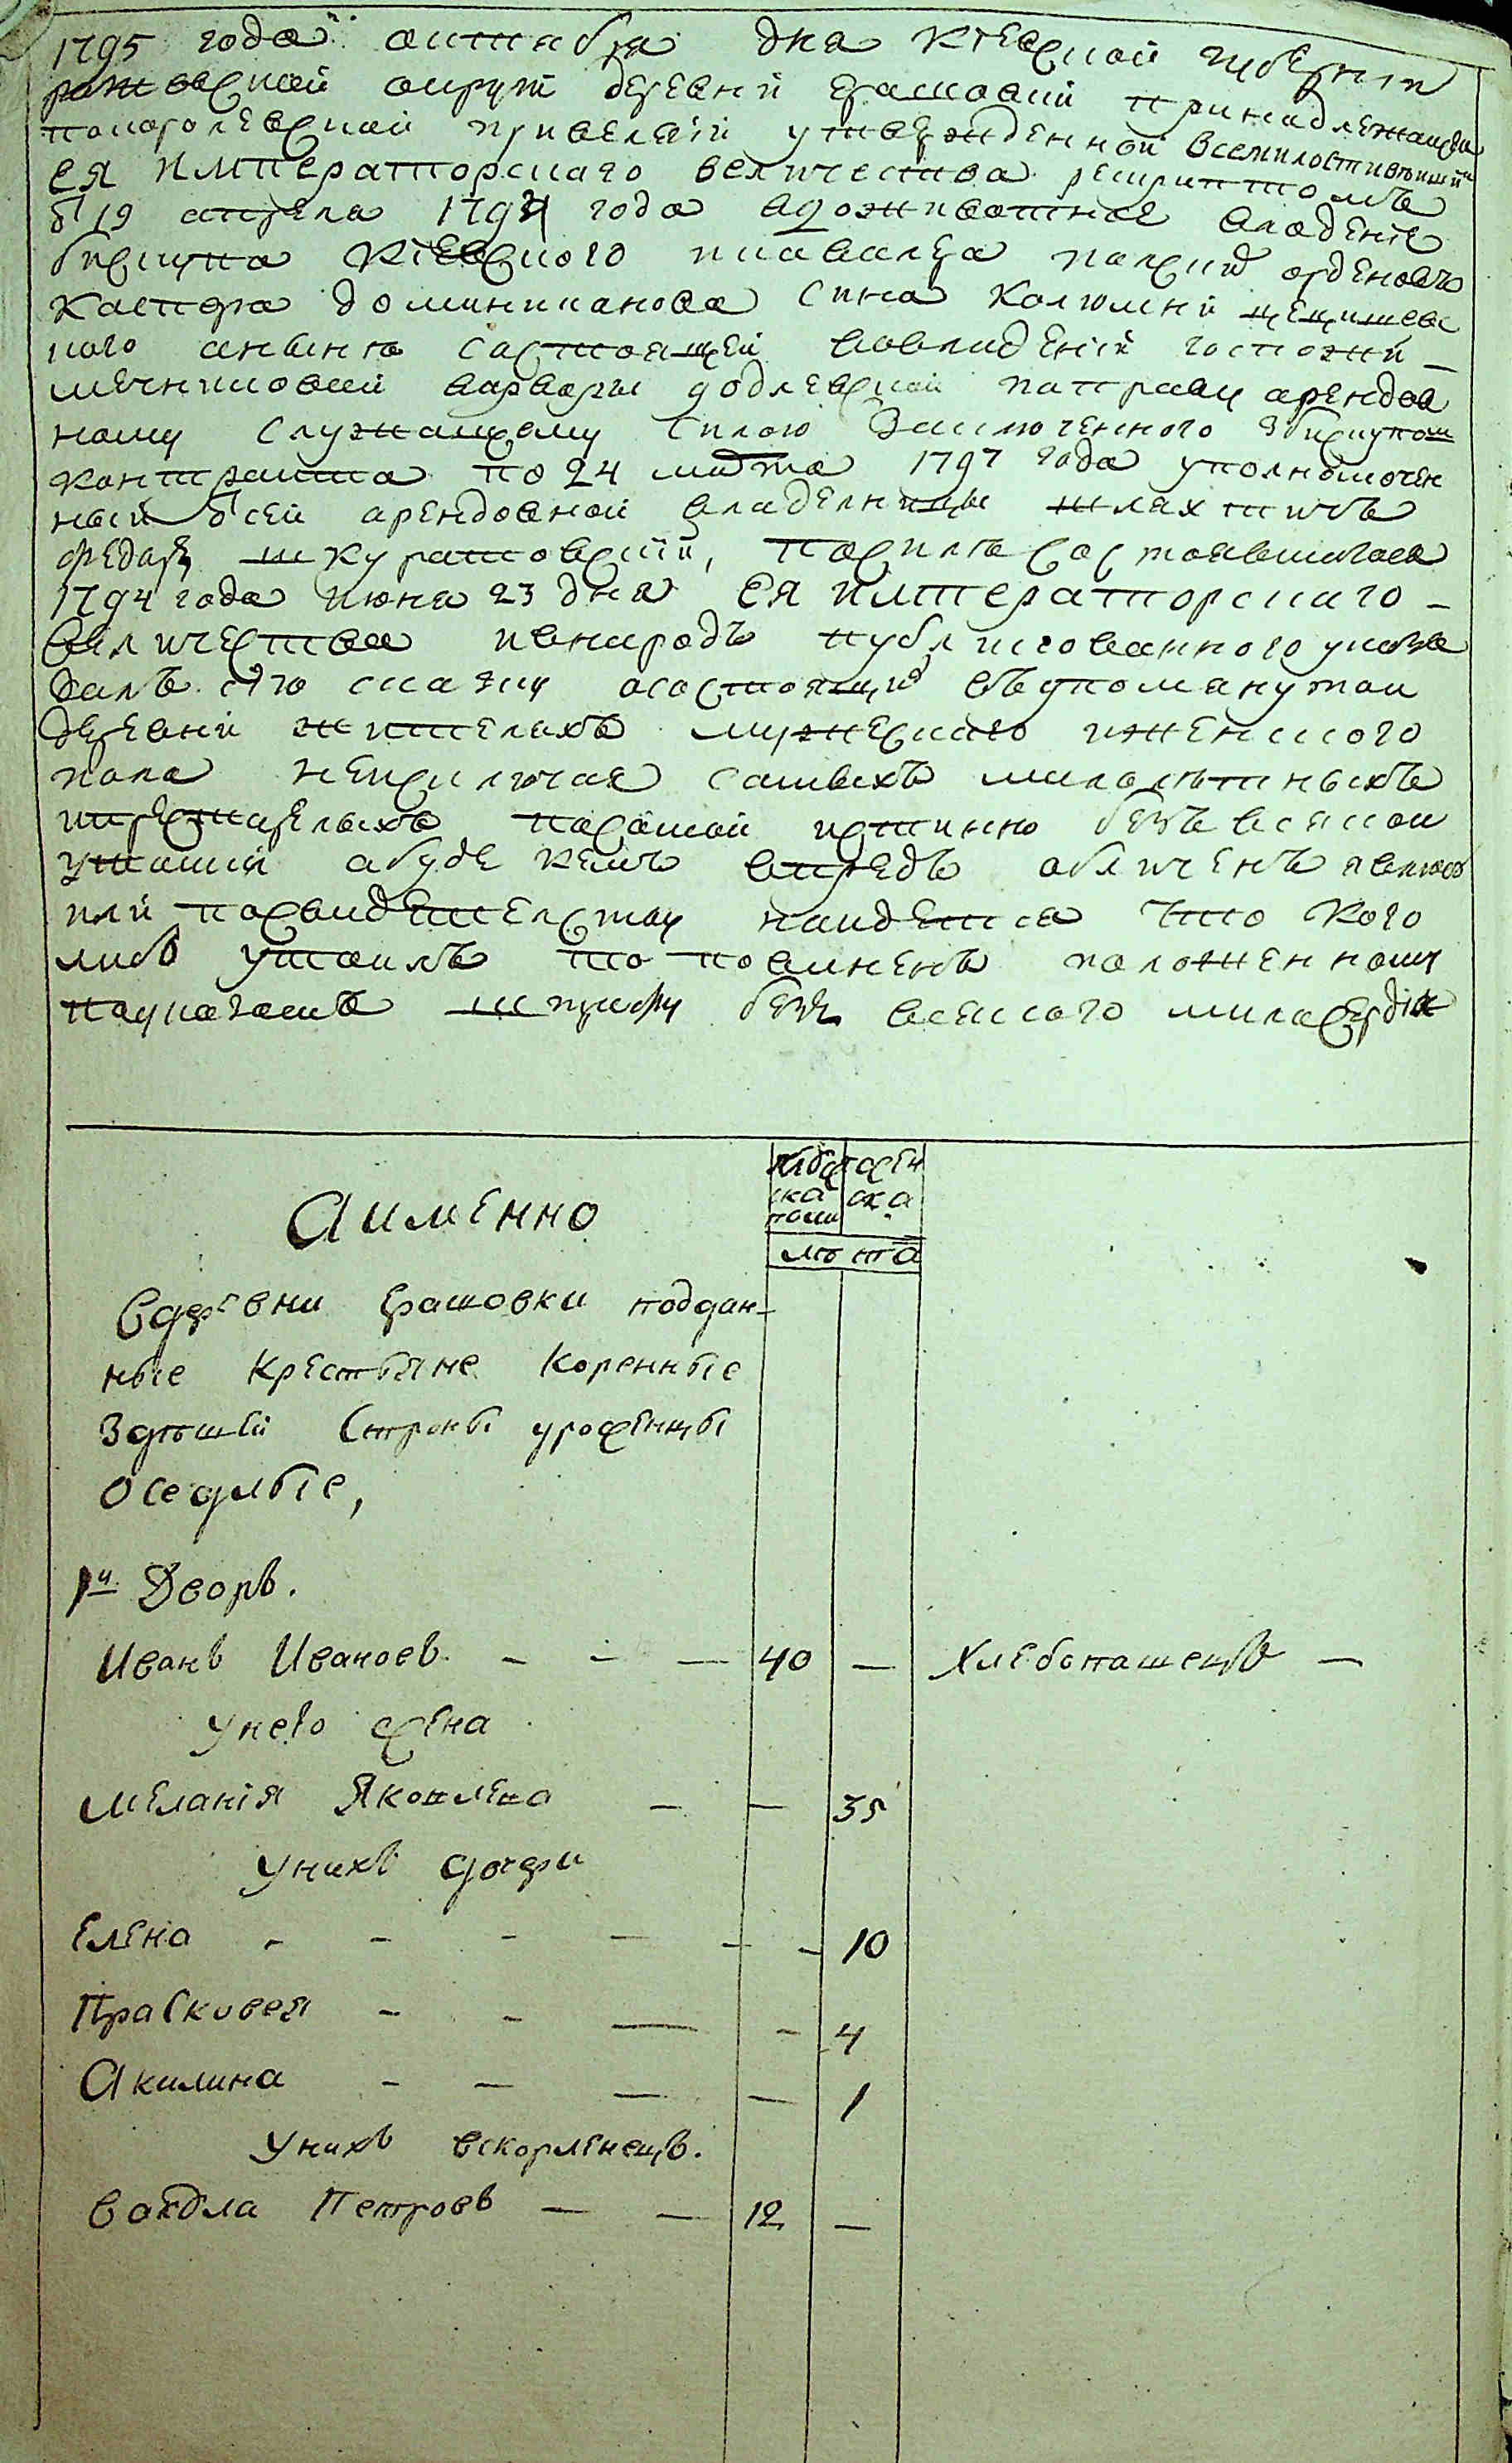 1795 года октября дня Киевской губернии
округи деревни Ерашовки принадлежащей
покоролевской привелегии утвержденной всемилостивейшим
ея императорскаго величества рескриптомъ
19 апреля 179 года вдоживотное владение
бискупа Киевского кавалера полских орденовъ
Каспра доминиканова сына Колюмни Цецишевс
кого аныне састоящей вовладении госпожи
мечниковой варвары подлевской направу арендов
ному служащему силою Заключенного збискупом
контракта по 24 марта 1797 года уполномочен
ный отсей арендовной владелницы шляхтичъ
федоръ шкуратовский, посиле состоявшагося
1794 года июня 23 дня ея императорскаго
величества внародъ публикованного указа
далъ сию сказку осостоящих въупомянутой
деревни жителяхъ мужескаго иженского
пола неисключая самыхъ малолетныхъ
ипрестарелыхъ посамой истинно безъ всякой
утайки абуде кемъ впредь обличенъ явлюсь
или посвидетелству найдется что кого
либо утаилъ то повиненъ положенному
поуказамъ штрафу безъ всякого милосердия
Аименно
мужеска женска
пола
лета
Вдеревни Ерашовки поддан-
ные крестьяне коренные
Здешней Строны уроженцы
оседлые,
1й Дворъ.
Иванъ Ивановъ — — — 40 — Хлебопашецъ —
Унего жена
Мелания Яковлева — — 35
Унихъ дочери
Елена — — — — — — 10
Прасковея — — — — 4
Акилина — — — — 1
Унихъ вскормленецъ.
Петровъ — — 12 —